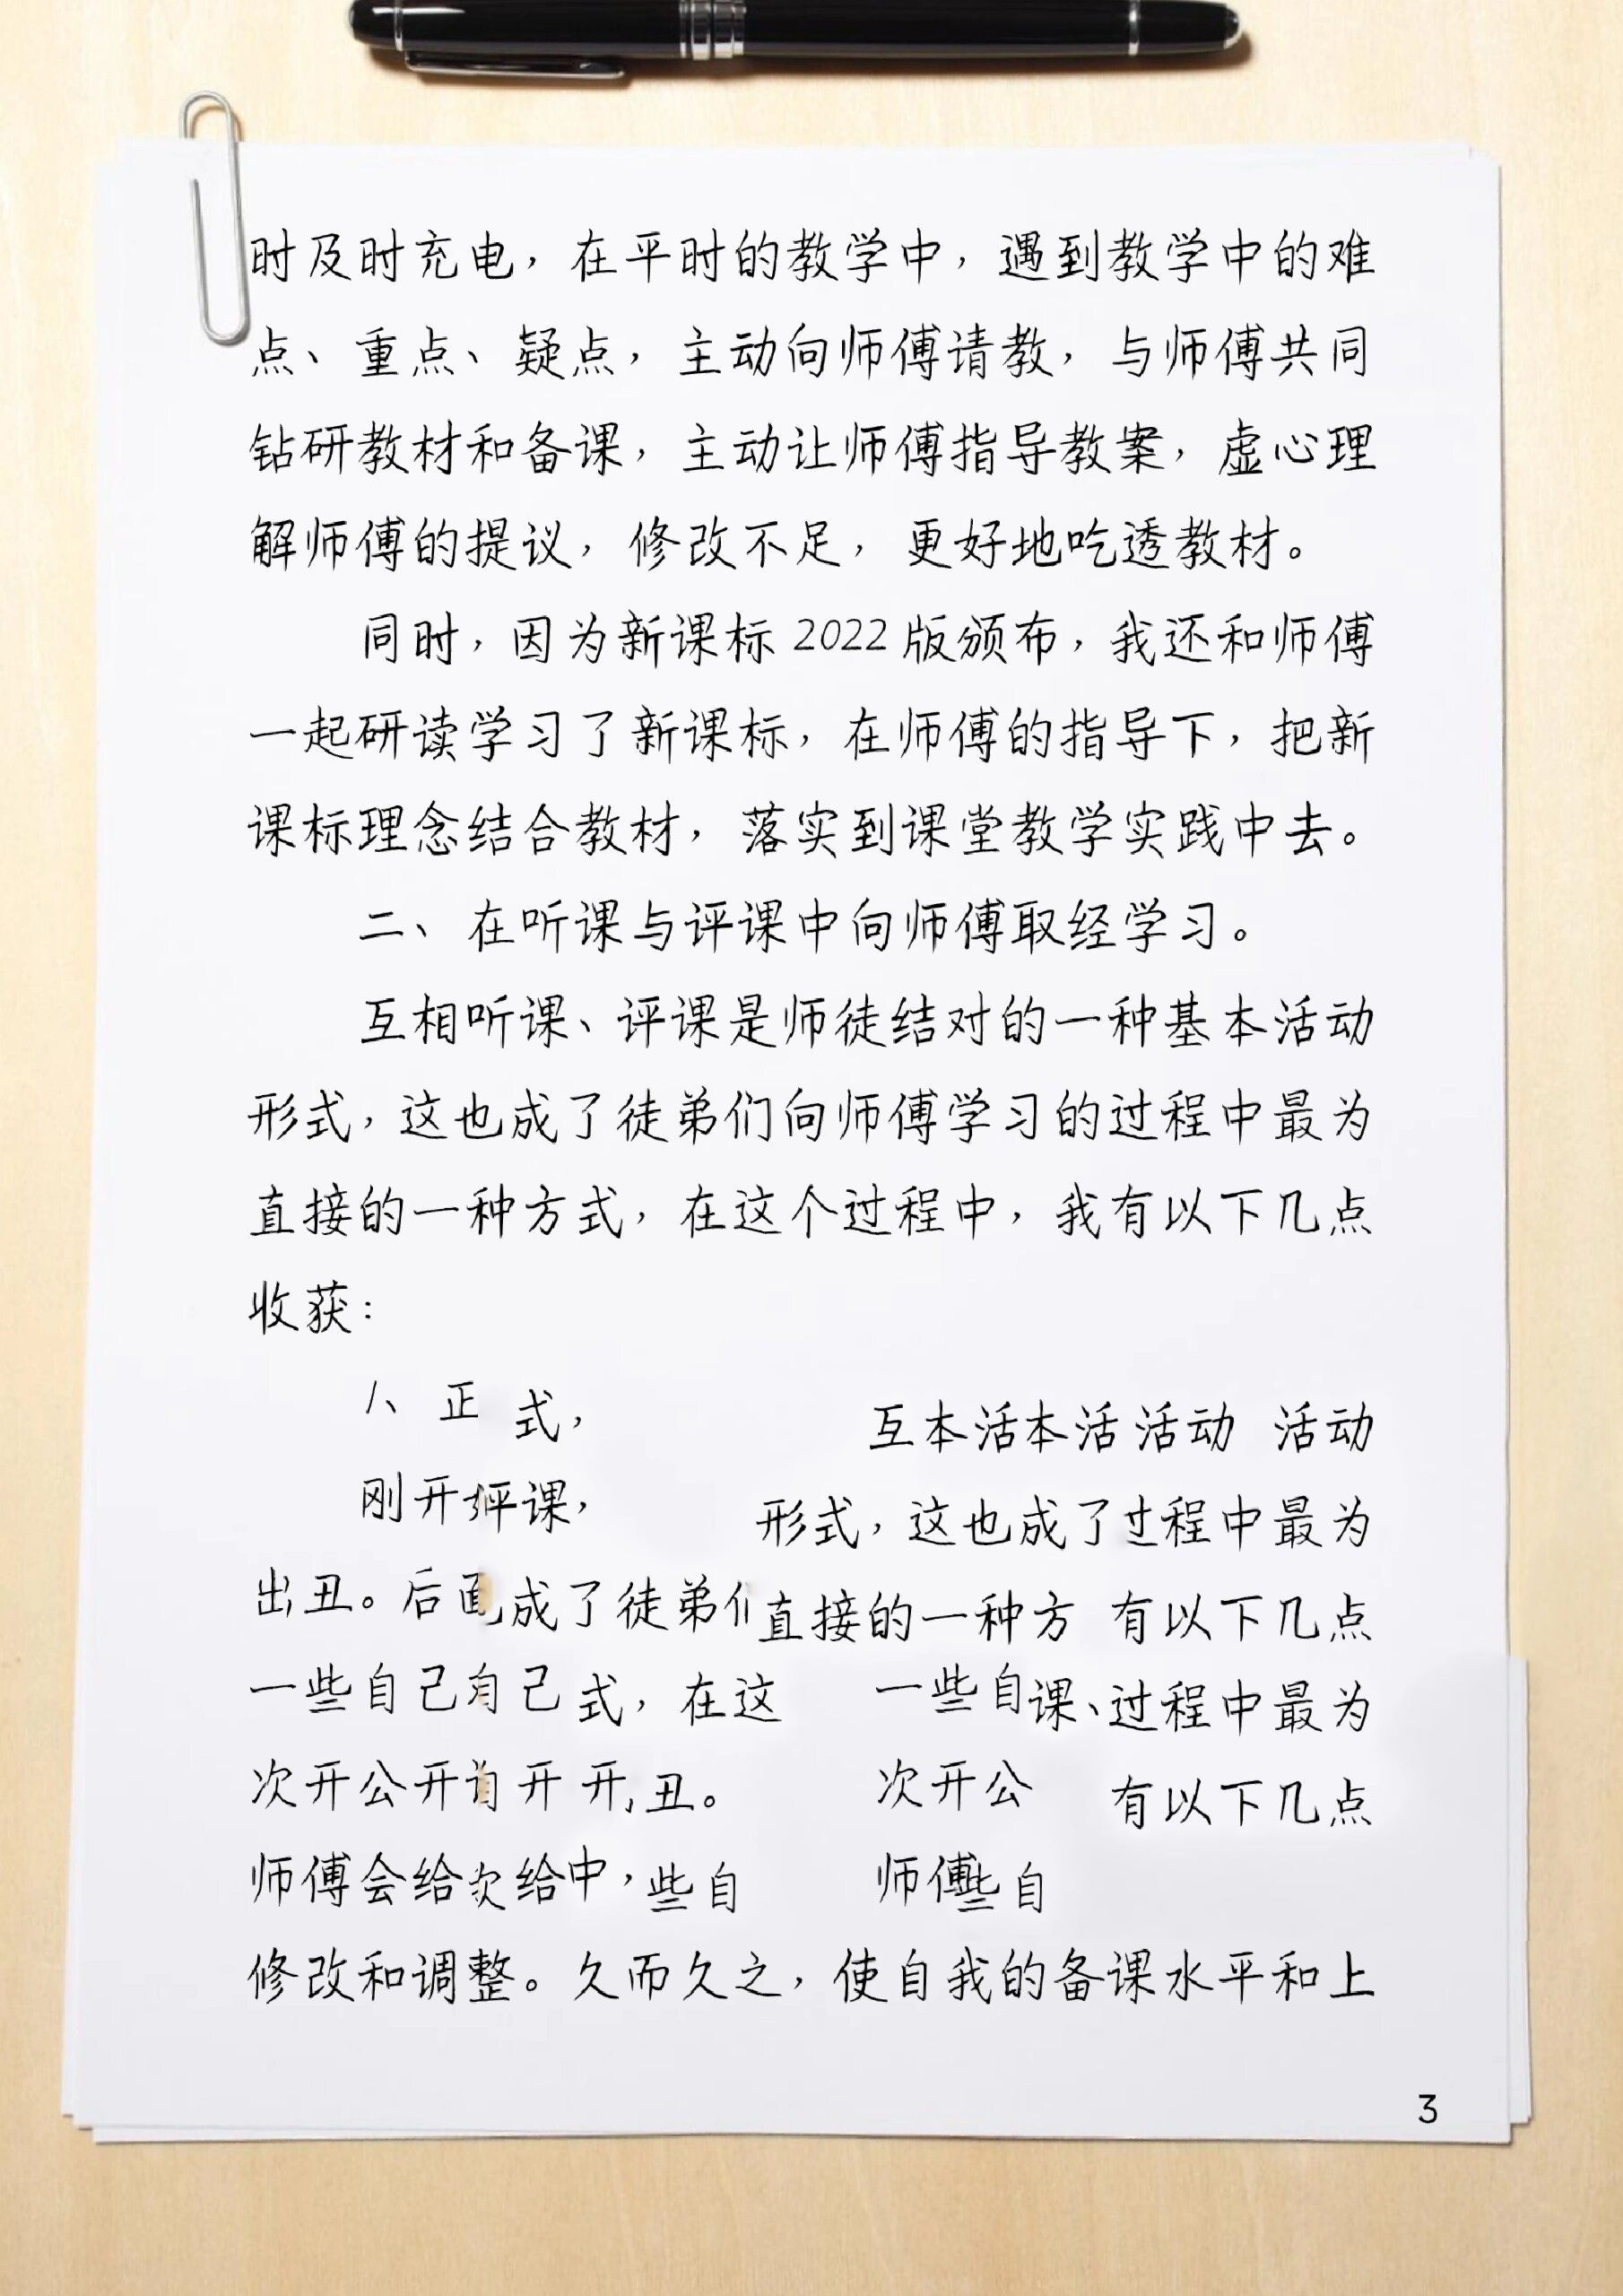 时及时充电，在平时的教学中，遇到教学中的难
点、重点、疑点，主动向师傅请教，与师傅共同
钻研教材和备课，主动让师傅指导教案，虚心理
解师傅的提议，修改不足，更好地吃透教材。
同时，因为新课标 2022 版颁布，我还和师傅
一起研读学习了新课标，在师傅的指导下，把新
课标理念结合教材，落实到课堂教学实践中去。
二、在听课与评课中向师傅取经学习。
互相听课、评课是师徒结对的一种基本活动
形式，这也成了徒弟们向师傅学习的过程中最为
直接的一种方式，在这个过程中，我有以下几点
收获：
1、正 式， 互本活本活 活动 活动
刚开评课， 形式，这也成了过程中最为
出丑。后 成了徒弟们直接的一种方 有以下几点
一些自己 己式，在这 一些自课、过程中最为
次开公开 开 开 丑。 次开公 有以下几点
师傅会给 给中，些自 师傅些自
修改和调整。久而久之，使自我的备课水平和上
3